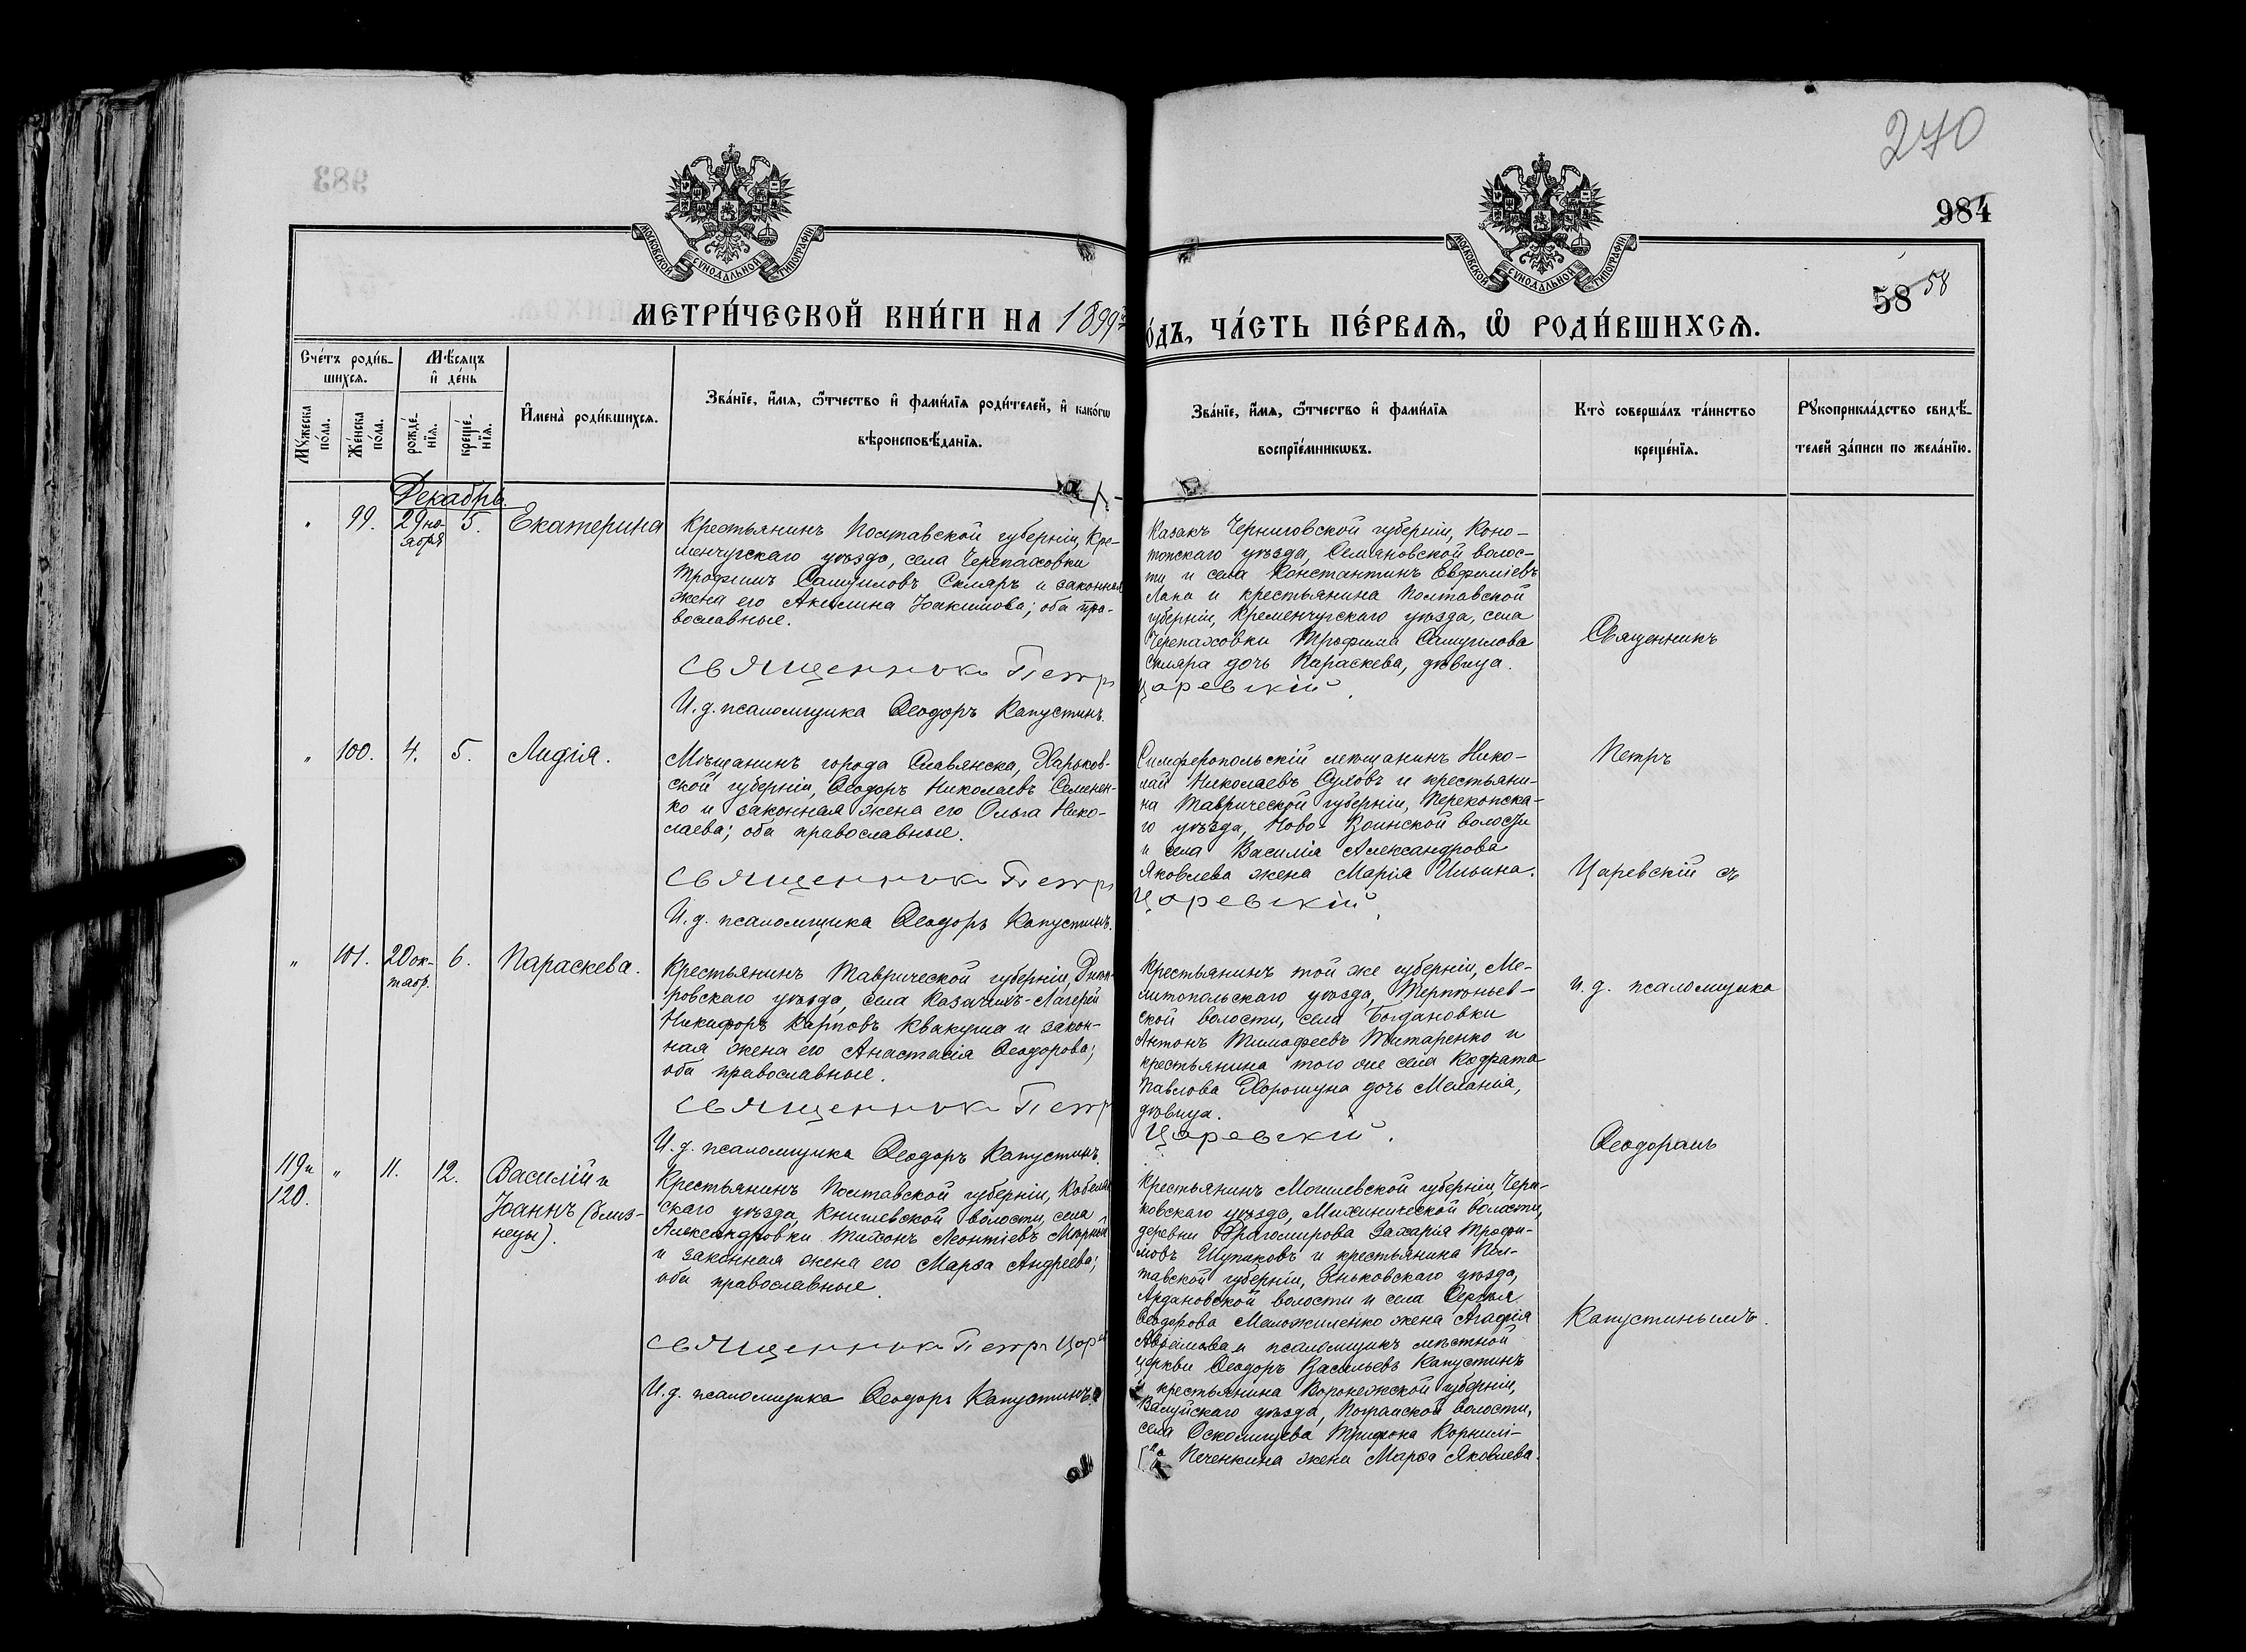 270
984
58 58
МОСКОВСКОЙ СУНОДАЛЬНОЙ ТИПОГРАФІИ
МОСКОВСКОЙ СУНОДАЛЬНОЙ ТИПОГРАФІИ
МЕТРИ́ЧЕСКОЙ КНИ́ГИ НА 1899
О́ДЪ, ЧА́СТЬ ПЕ́РВАѦ, Ѽ РОДИ́ВШИХСѦ.
Сче́тъ роди́в-
шихсѧ.
Мꙋ́жеска
по́ла.
Же́нска
по́ла.
Мѣ́сѧцъ
и҆ де́нь
рожде́-
нїѧ.
креще́-
нїѧ.
И҆мена̀ роди́вшихсѧ.
Зва́нїе, и҆́мѧ, ѻ҆́тчество и҆ фами́лїѧ роди́телей, и҆ како́гѡ
вѣроисповѣ́данїѧ.
Зва́нїе, и҆́мѧ, ѻ҆́тчество и҆ фами́лїѧ
воспрїе́мникѡвъ.
Кто̀ соверша́лъ та́инство
креще́нїѧ.
Рꙋкоприкла́дство свидѣ́-
телей за́писи по жела́нїю.
Декабрь.
" 99. 29 но-
ября 5. Екатерина
Крестьянинъ Полтавской губерніи, Кре-
менчугскаго уѣзда, села Черепаховки
Трофимъ Самуиловъ Скляръ и законная
жена его Акилина Іоакимова; оба пра-
вославные.
Священникъ Петръ
И. д. псаломщика Ѳеодоръ Капустинъ.
Казакъ Черниговской губерніи, Коно-
топскаго уѣзда, Семяновской волос-
ти и села Константинъ Евфиміевъ
Лапа и крестьянина Полтавской
губерніи, Кременчугскаго уѣзда, села
Черепаховки Трофима Самуилова
Скляра дочь Параскева, дѣвица.
Царевскій.
Священникъ
" 100. 4. 5. Лидія.
Мѣщанинъ города Славянска, Харьков-
ской губерніи, Ѳеодоръ Николаевъ Семенен-
ко и законная жена его Ольга Нико-
лаева; оба православные.
Священникъ Петръ
И. д. псаломщика Ѳеодоръ Капустинъ.
Симферопольскій мѣщанинъ Нико-
лай Николаевъ Суховъ и крестьяни-
на Таврической губерніи, Перекопска-
го уѣзда, Ново-Воинской волости
и села Василія Александрова
Яковлева жена Марія Ильина.
Царевскій.
Петръ
Царевскій съ
" 101. 20 ок-
тябр. 6. Параскева.
Крестьянинъ Таврической губерніи, Днѣп-
ровскаго уѣзда, села Казачихъ-Лагерей
Никифоръ Карповъ Квакуша и закон-
ная жена его Анастасія Ѳеодорова;
оба православные.
Священникъ Петр
И. д. псаломщика Ѳеодоръ Капустинъ.
Крестьянинъ той же губерніи, Ме-
литопольскаго уѣзда, Терпѣньев-
ской волости, села Богдановки
Антонъ Тимофеевъ Титаренко и
крестьянина того же села Кодрата
Павлова Хорошуна дочь Меланія,
дѣвица.
Царевскій.
и. д. псаломщика
Ѳеодоромъ
119 и
120. " 11. 12. Василій и
Іоаннъ (близ-
нецы).
Крестьянинъ Полтавской губерніи, Кобеляк
скаго уѣзда, Кишеневской волости, села
Александровки Тихонъ Леонтіевъ Мирный
и законная жена его Марѳа Андреева;
оба православные.
Священникъ Петръ Царе
И. д. псаломщика Ѳеодоръ Капустинъ
Крестьянинъ Могилевской губерніи, Чери-
ковскаго уѣзда, Милиничской волости,
деревни Драгомирова Захарія Трофи-
мовъ Шупиковъ и крестьянина Пол-
тавской губерніи, Зньковскаго уѣзда,
Ардановской волости и села Сергѣя
Ѳеодорова Маложиленко жена Агафія
Авраамова и псаломщикъ мѣстной
церкви Ѳеодоръ Васильевъ Капустинъ
и крестьянина Воронежской губерніи,
Валуйскаго уѣзда, Погромской волости,
села Осколищева Трифона Корнилі-
Печенкина жена Марѳа Яковлева.
Капустинымъ.